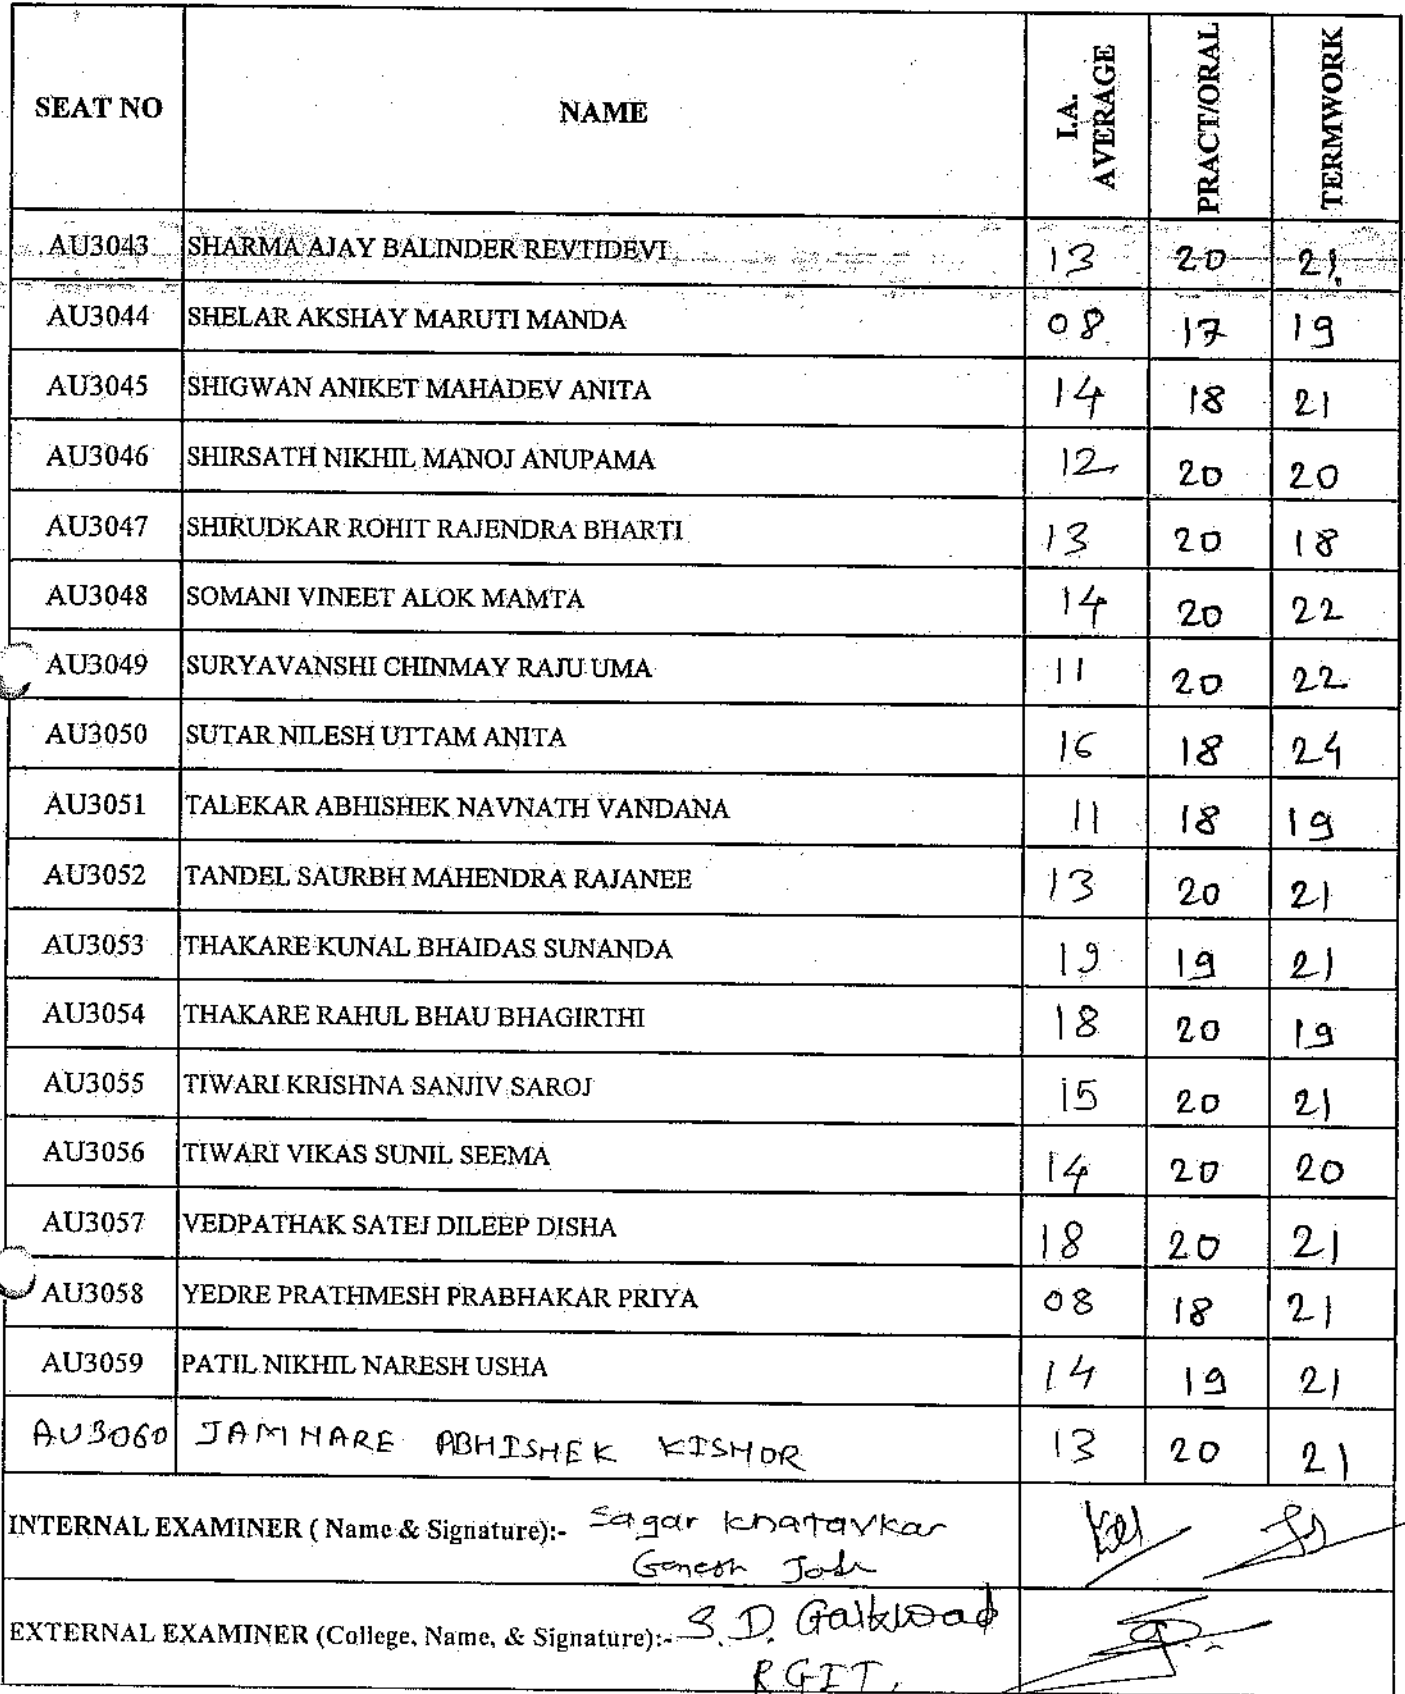 SEAT NO NAME I.A. AVERAGE PRACT/ORAL TERMWORK
AU3043 SHARMA AJAY BALINDER REVTIDEVI 13 20 21
AU3044 SHELAR AKSHAY MARUTI MANDA 08 17 19
AU3045 SHIGWAN ANIKET MAHADEV ANITA 14 18 21
AU3046 SHIRSATH NIKHIL MANOJ ANUPAMA 12 20 20
AU3047 SHIRUDKAR ROHIT RAJENDRA BHARTI 13 20 18
AU3048 SOMANI VINEET ALOK MAMTA 14 20 22
AU3049 SURYAVANSHI CHINMAY RAJU UMA 11 20 22
AU3050 SUTAR NILESH UTTAM ANITA 16 18 24
AU3051 TALEKAR ABHISHEK NAVNATH VANDANA 11 18 19
AU3052 TANDEL SAURBH MAHENDRA RAJANEE 13 20 21
AU3053 THAKARE KUNAL BHAIDAS SUNANDA 19 19 21
AU3054 THAKARE RAHUL BHAU BHAGIRTHI 18 20 19
AU3055 TIWARI KRISHNA SANJIV SAROJ 15 20 21
AU3056 TIWARI VIKAS SUNIL SEEMA 14 20 20
AU3057 VEDPATHAK SATEJ DILEEP DISHA 18 20 21
AU3058 YEDRE PRATHMESH PRABHAKAR PRIYA 08 18 21
AU3059 PATIL NIKHIL NARESH USHA 14 19 21
AU3060 JAMNARE ABHISHEK KISHOR 13 20 21
INTERNAL EXAMINER ( Name & Signature):- Sagar Khatavkar
Ganesh Joshi
EXTERNAL EXAMINER (College, Name, & Signature):- S.D. Gaikwad
RGIT.